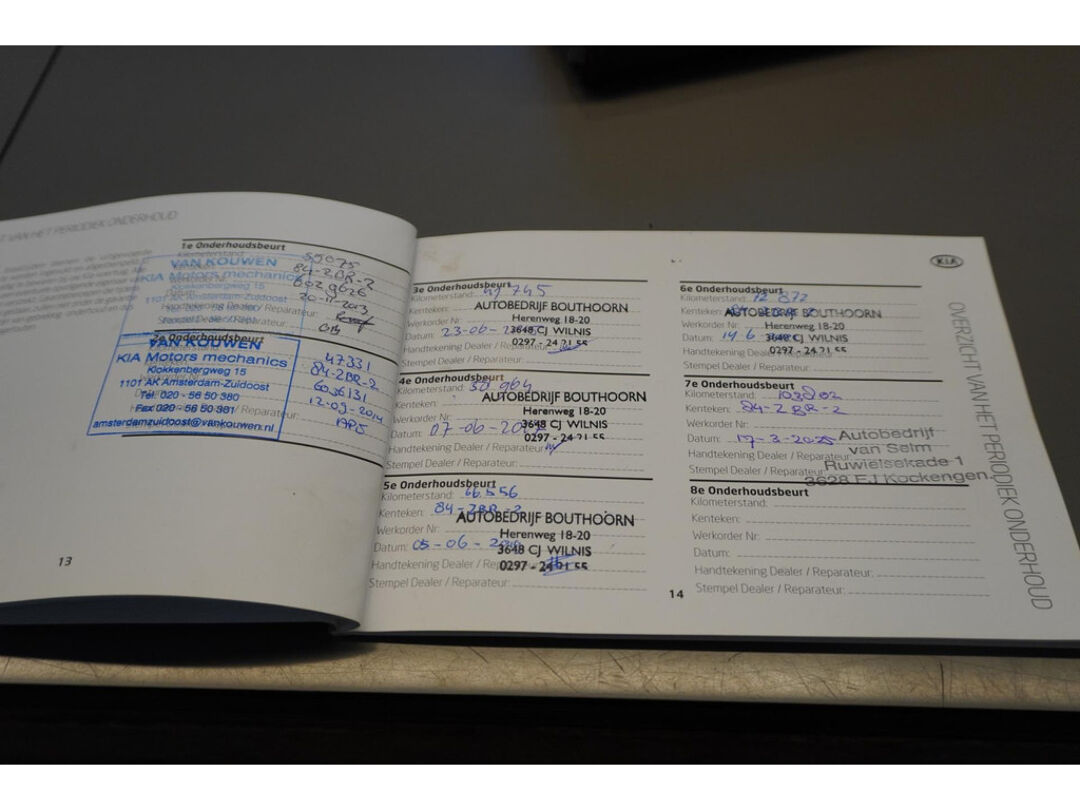 T VAN HET PERIODIEK ONDERHOUD
1e Onderhoudsbeurt
Kilometerstand
VAN KOUWEN
KIA Motors mechanics
Klokkenbergweg 15
1101 AK Amsterdam-Zuidoost
84-2BR-2
20-11-2013
Handtekening Dealer / Reparateur:
Stempel Dealer / Reparateur:
2e Onderhoudsbeurt
VAN KOUWEN
KIA Motors mechanics
Klokkenbergweg 15
1101 AK Amsterdam-Zuidoost
Tel: 020 - 56 50 380
Fax 020 - 56 50 381
amsterdamzuidoost@vankouwen.nl
47331
84-2BR-2
6036131
12-09-2014
13
3e Onderhoudsbeurt
Kilometerstand:
AUTOBEDRIJF BOUTHOORN
Kenteken:
Herenweg 18-20
Werkorder Nr:
3648 CJ WILNIS
Datum: 23-06-
0297 - 24 21 55
Handtekening Dealer / Reparateur:
Stempel Dealer / Reparateur:
4e Onderhoudsbeurt
Kilometerstand: 50964
AUTOBEDRIJF BOUTHOORN
Kenteken:
Herenweg 18-20
Werkorder Nr:
3648 CJ WILNIS
Datum: 07-06-
0297 - 24 21 55
Handtekening Dealer / Reparateur:
Stempel Dealer / Reparateur:
5e Onderhoudsbeurt
Kilometerstand: 66.556
Kenteken: 84-2BR-2
AUTOBEDRIJF BOUTHOORN
Herenweg 18-20
Werkorder Nr:
3648 CJ WILNIS
Datum: 05-06-
0297 - 24 21 55
Handtekening Dealer / Reparateur:
Stempel Dealer / Reparateur:
KIA
6e Onderhoudsbeurt
Kilometerstand: 72 872
Kenteken:
AUTOBEDRIJF BOUTHOORN
Werkorder Nr:
Herenweg 18-20
Datum: 14 6
3648 CJ WILNIS
0297 - 24 21 55
Handtekening Dealer / Reparateur:
Stempel Dealer / Reparateur:
7e Onderhoudsbeurt
Kilometerstand:
Kenteken: 84-2BR-2
Werkorder Nr:
Datum: 17-3-2025
Autobedrijf
Handtekening Dealer / Reparateur:
van Selm
Stempel Dealer / Reparateur:
Ruwielsekade 1
3628 EJ Kockengen
8e Onderhoudsbeurt
Kilometerstand:
Kenteken:
Werkorder Nr:
Datum:
Handtekening Dealer / Reparateur:
Stempel Dealer / Reparateur:
14
OVERZICHT VAN HET PERIODIEK ONDERHOUD